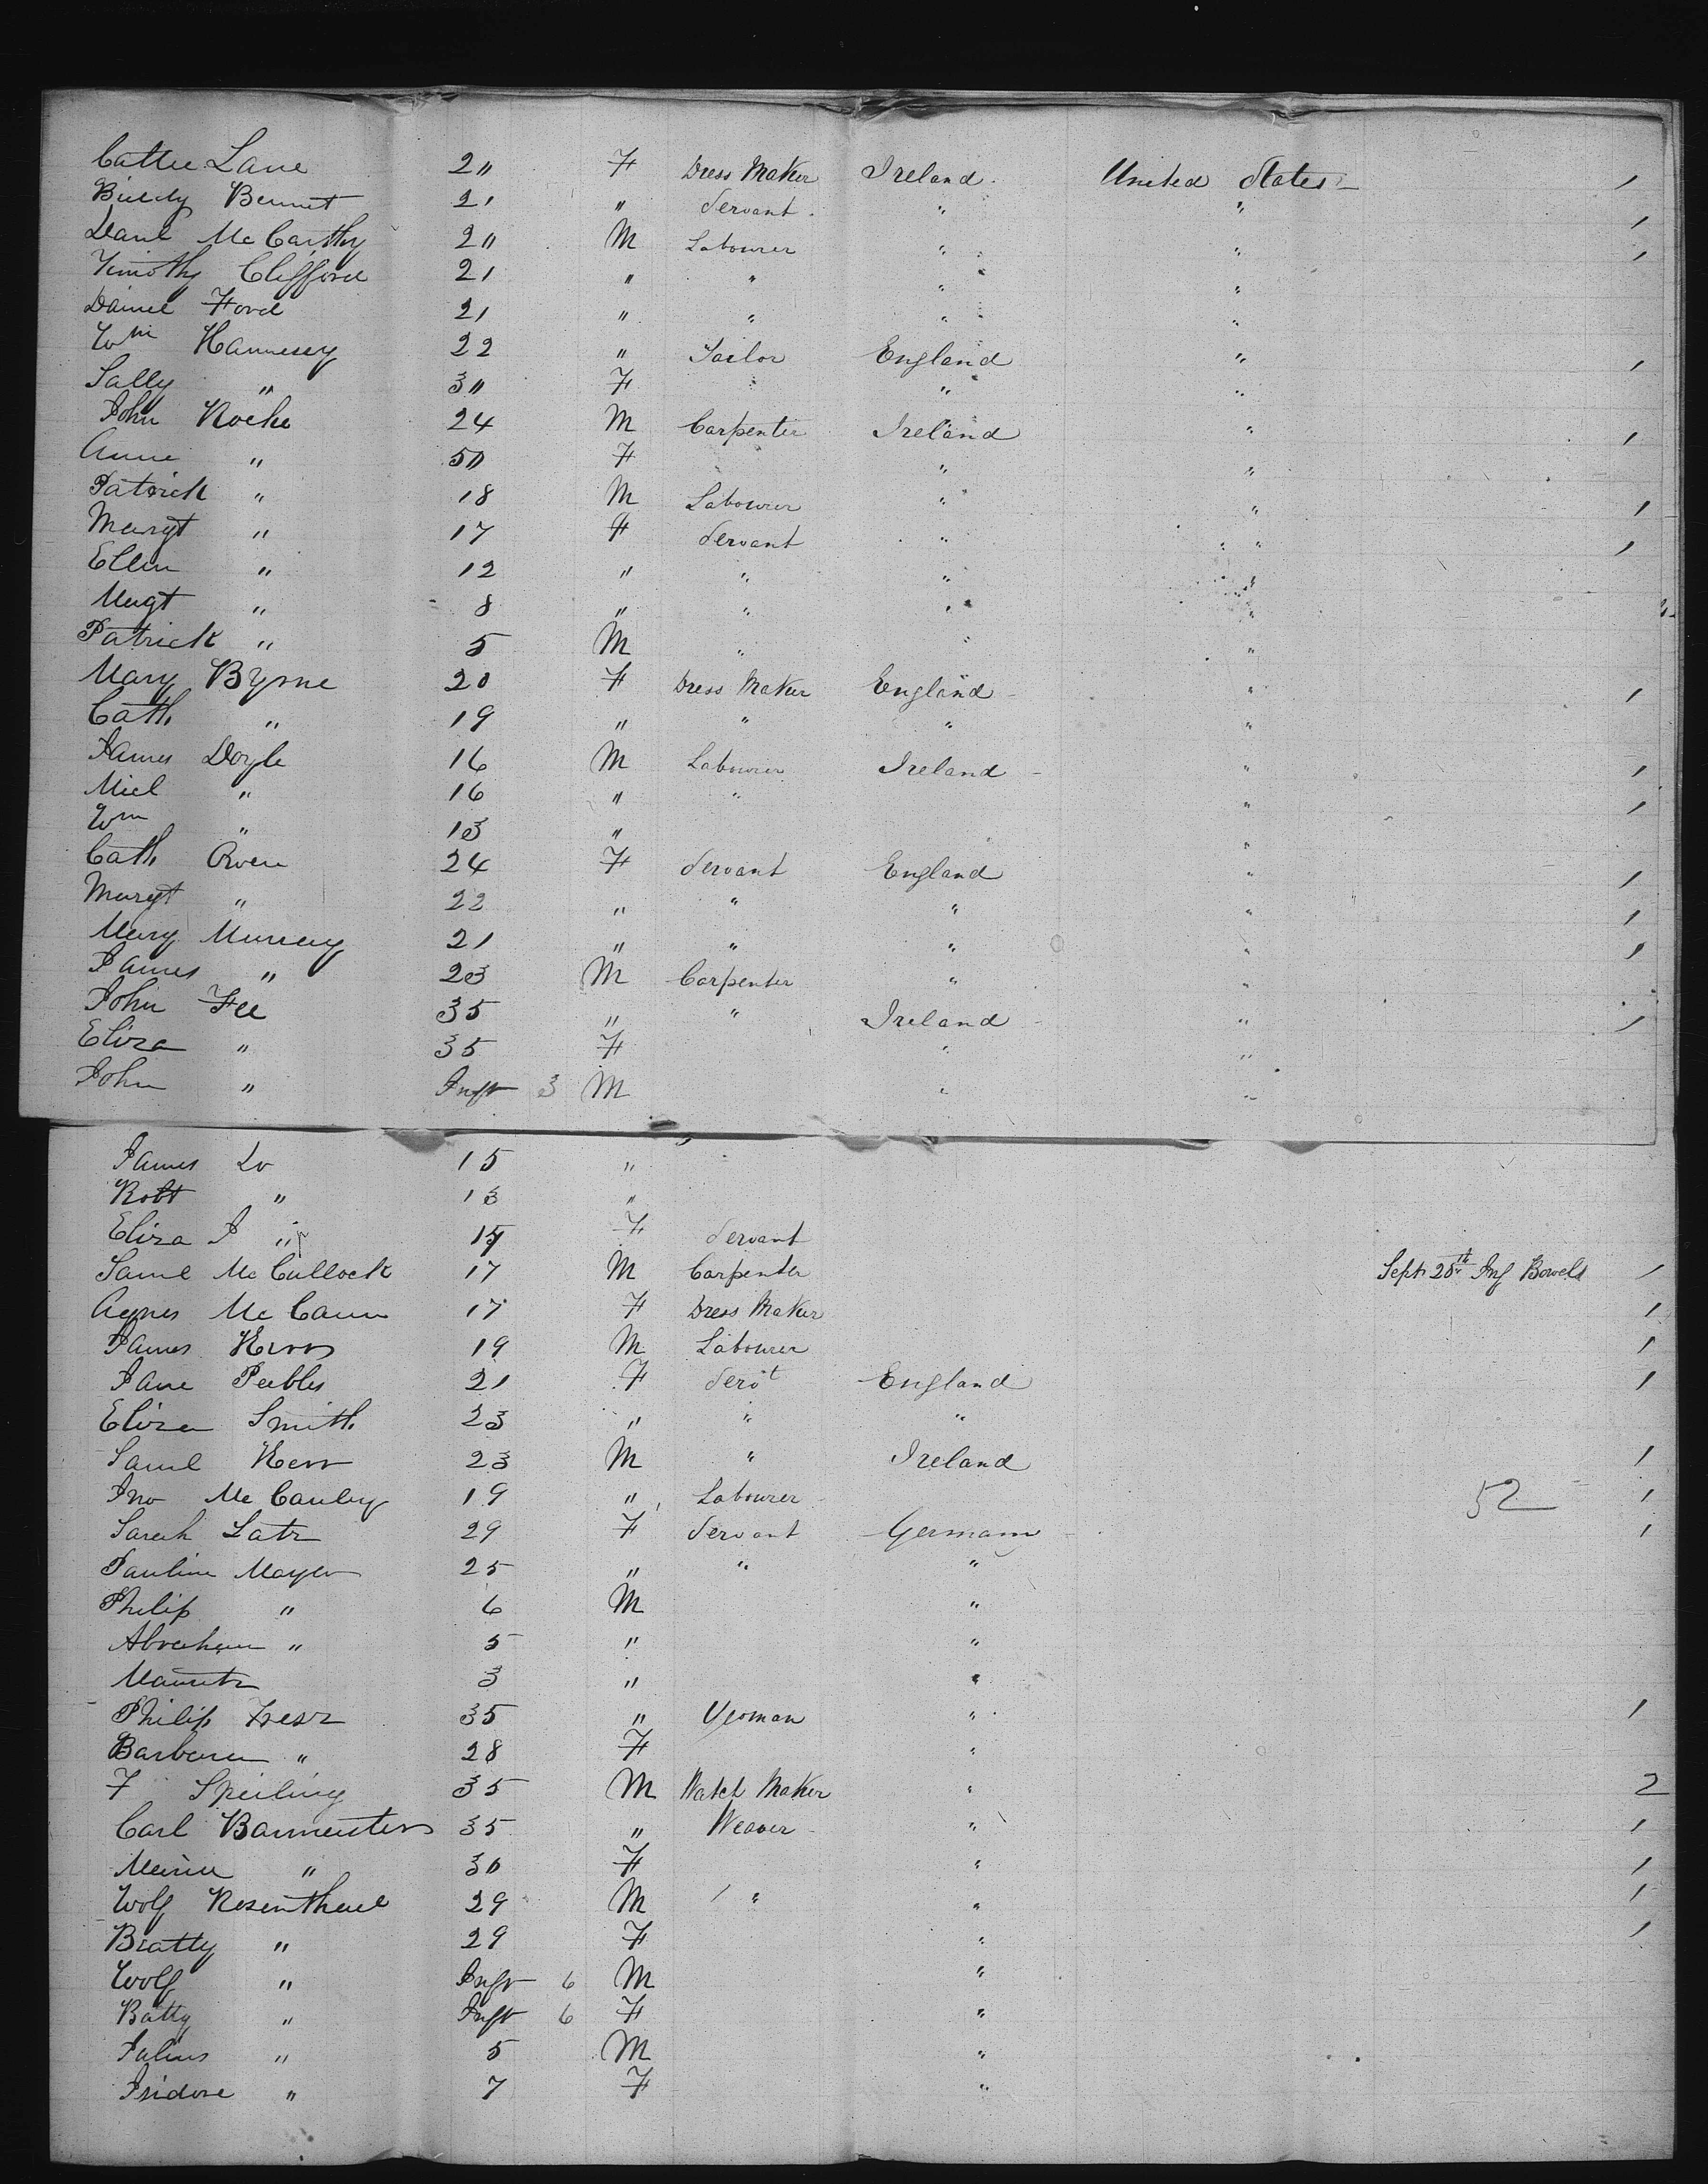 Cattie Lane 2" F Dress Maker Ireland United States 1
Biddy Bennet 21 " Servant " " 1
Danl McCarthy 2" M Labourer " " 1
Timothy Clifford 21 " " " "
Daniel Ford 21 " " " "
Wm Hannesey 22 " Tailor England " 1
Sally " 3" F " "
John Roche 24 M Carpenter Ireland " 1
Anne " 50 F " "
Patrick " 18 M Labourer " " 1
Margt " 17 F Servant " " 1
Ellen " 12 " " " "
Magt " 8 " " " "
Patrick " 5 M " " "
Mary Byrne 20 F Dress Maker England " 1
Cath " 19 " " " "
James Doyle 16 M Labourer Ireland " 1
Micl " 16 " " " 1
Wm " 13 " "
Cath Owen 24 F Servant England " 1
Margt " 22 " " " " 1
Mary Murray 21 " " " " 1
James " 23 M Carpenter " "
John Fee 35 " " Ireland " 1
Eliza " 35 F " "
John " Inft 3 M " "
James Do 15 "
Robt " 13 "
Eliza J " F Servant
Saml McCullock 17 M Carpenter Sept 25th Inf Bowels 1
Agnes McCann 17 F Dress Maker 1
James Kerr 19 M Labourer 1
Jane Peebles 21 F Servt England 1
Eliza Smith 23 " " "
Saml Kerr 23 M " Ireland 1
Jno McCauley 19 " Labourer 52 1
Sarah Latz 29 F Servant German 1
Pauline Mayer 25 " " "
Philip " 6 M "
Abraham " 5 " "
Mauritz 3 " "
Philip 35 " Yeoman " 1
Barbara " 28 F "
F Speiling 35 M Watch Maker " 2
Carl Barmenter 35 " Weaver " 1
Maria " 30 F " 1
Wolf Rosenthael 29 M " " 1
Bratty " 29 F " 1
Wolf " Inft 6 M "
Batty " Inft 6 F "
Julius " 5 M "
Isidore " 7 F "